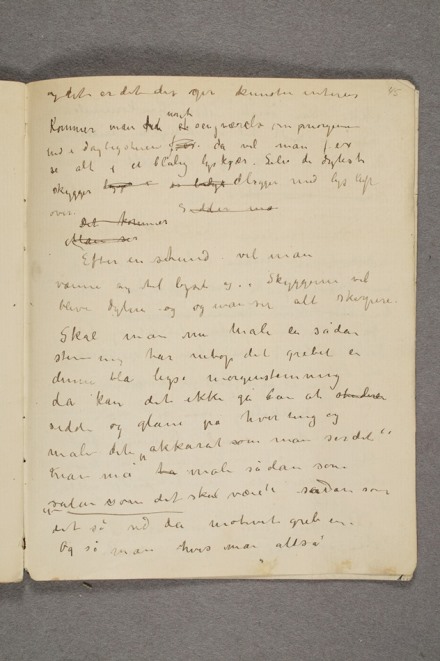 og det er det der gir kunsten interess 45
Kommer man fra et mørkt
soveværelse om morgenen
ind i dagligstuen da vil man f. ex
se alt i et blålig lyskjær. Selv de dybeste
skygger ligger med lyst luft
over.
Det kommer
Man ser
Efter en stund vil man
vænne sig til lyset og skyggerne vil
blive dybere og man ser alt skarpere.
Skal man nu male en sådan
stemning har netop det grebet en
denne blå lyse morgenstemning
da kan det ikke gå bare at
sidde og glane på hver ting og
male det „akkurat som man ser det“
Man må male sådan som
sådan som det skal være sådan som
det så ud da motivet greb en.
Og så man hvis man altså